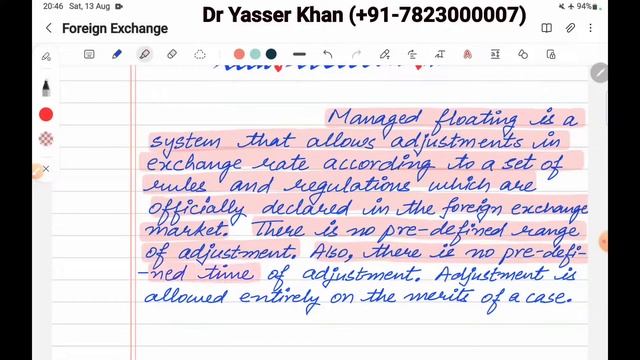 20:46 Sat, 13 Aug
94%
Dr Yasser Khan (+91-7823000007)
Foreign Exchange
Managed floating is a
system that allows adjustments in
exchange rate according to a set of
rules and regulations which are
officially declared in the foreign exchange
market. There is no pre-defined range
of adjustment. Also, there is no pre-defi-
-ned time of adjustment. Adjustment is
allowed entirely on the merits of a case.